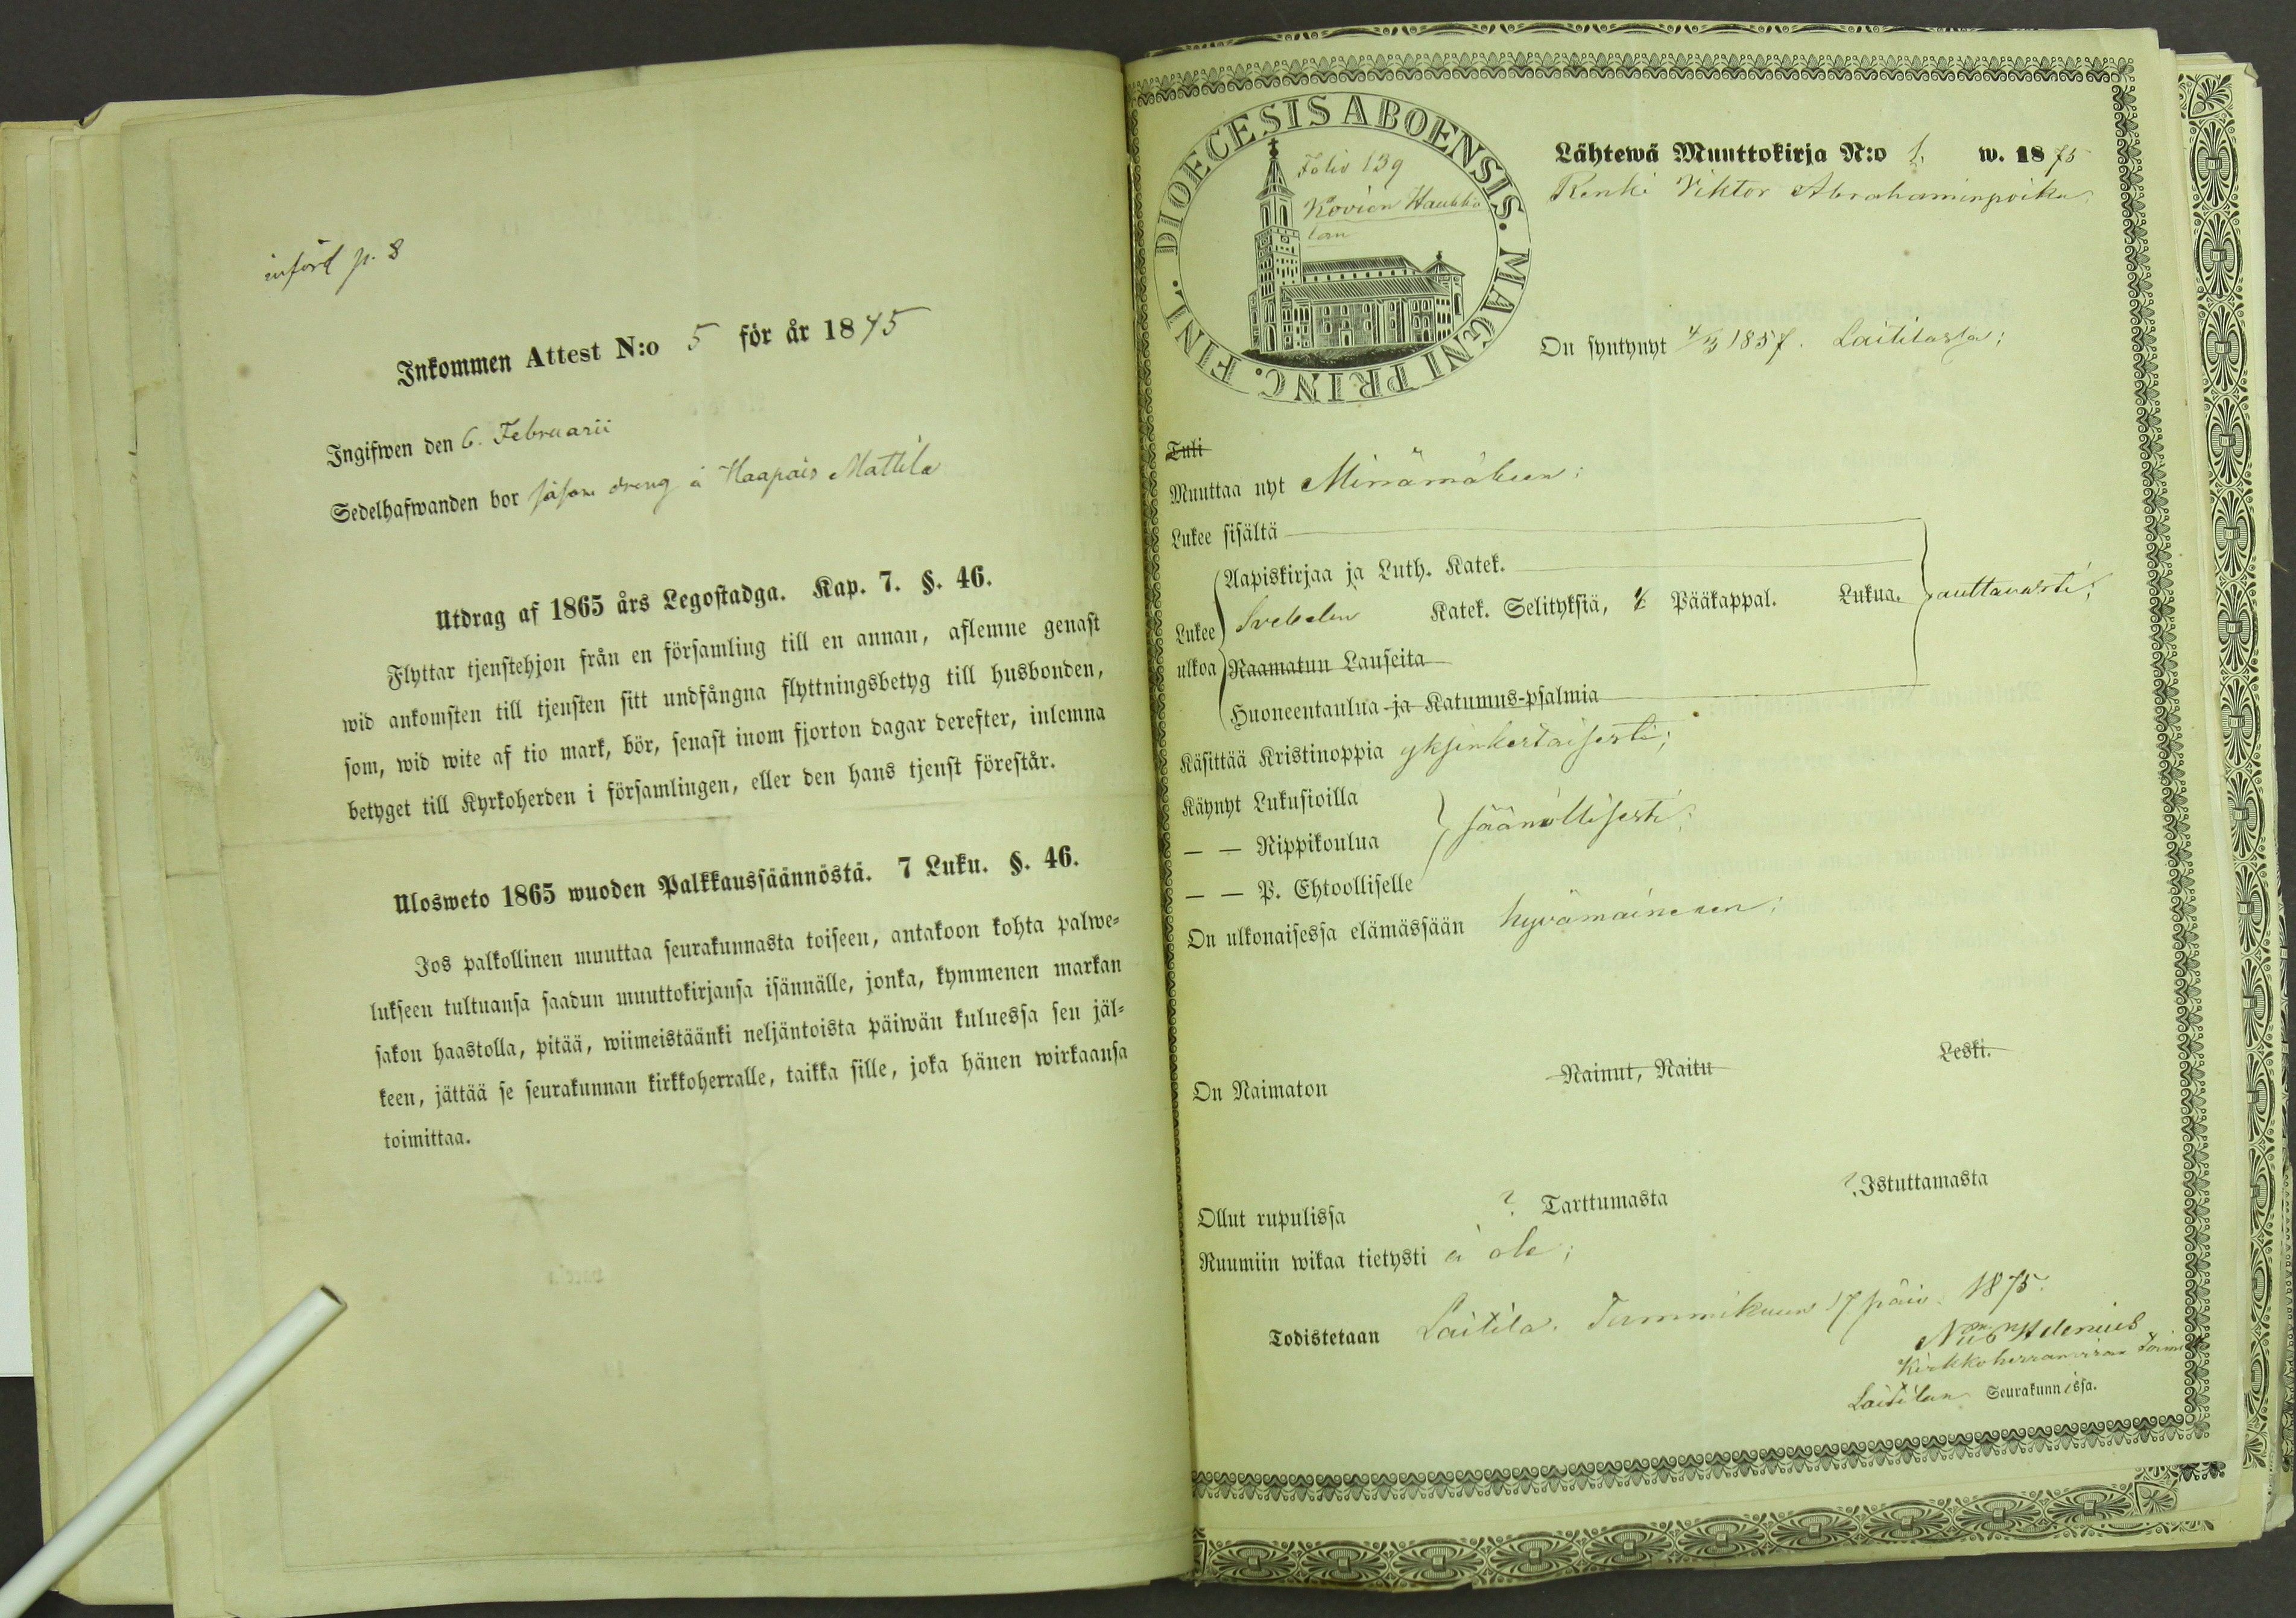 införd p. 8
Inkommen Attest N:o 5 för år 1875
Ingifwen den 6. Februarii
Sedelhafwanden bor såsom dreng å Haapais Mattila
Utdrag af 1865 års Legostadga. Kap. 7. §. 46.
Flyttar tjenstehjon från en församling till en annan, aflemne genast
wid ankomsten till tjensten sitt undfångna flyttningsbetyg till husbonden,
som, wid wite af tio mark, bör, senast inom fjorton dagar derefter, inlemna
betyget till Kyrkoherden i församlingen, eller den hans tjenst förestår.
Ulosweto 1865 wuoden Palkkaussäännöstä. 7 Luku. §. 46.
Jos palkollinen muuttaa seurakunnasta toiseen, antakoon kohta palwe-
lukseen tultuansa saadun muuttokirjansa isännälle, jonka, kymmenen markan
sakon haastolla, pitää, wiimeistäänki neljäntoista päiwän kuluessa sen jäl-
keen, jättää se seurakunnan kirkkoherralle, taikka sille, joka hänen wirkaansa
toimittaa.
DIOECESIS ABOENSIS. MAGNI PRINC. FINL.
Folio 139
Kovion Haukka
lan
Lähtewä Muuttokirja N:o 1. w. 1875
Renki Viktor Abrahaminpoika
On syntynyt 1857. Laitilassa;
Tuli
Muuttaa nyt Mynämäkeen;
Lukee sisältä
Aapiskirjaa ja Luth. Katek.
Lukee Svebelin Katek. Selityksiä, Pääkappal. Lukua. auttavasti;
ulkoa Raamatun Lauseita
Huoneentaulua ja Katumus-psalmia
Käsittää Kristinoppia yksinkertaisesti;
Käynyt Lukusioilla
— — Rippikoulua säännöllisesti;
— — P. Ehtoolliselle
On ulkonaisessa elämässään hyvämaineinen;
On Naimaton Nainut, Naitu Leski.
Ollut rupulissa ? Tarttumasta ? Istuttamasta
Ruumiin wikaa tietysti ei ole;
Todistetaan Laitila. Tammikuun 17 päiv. 1875.
Helenius
Kirkkoherranviran toimit
Laitilan Seurakunnissa.